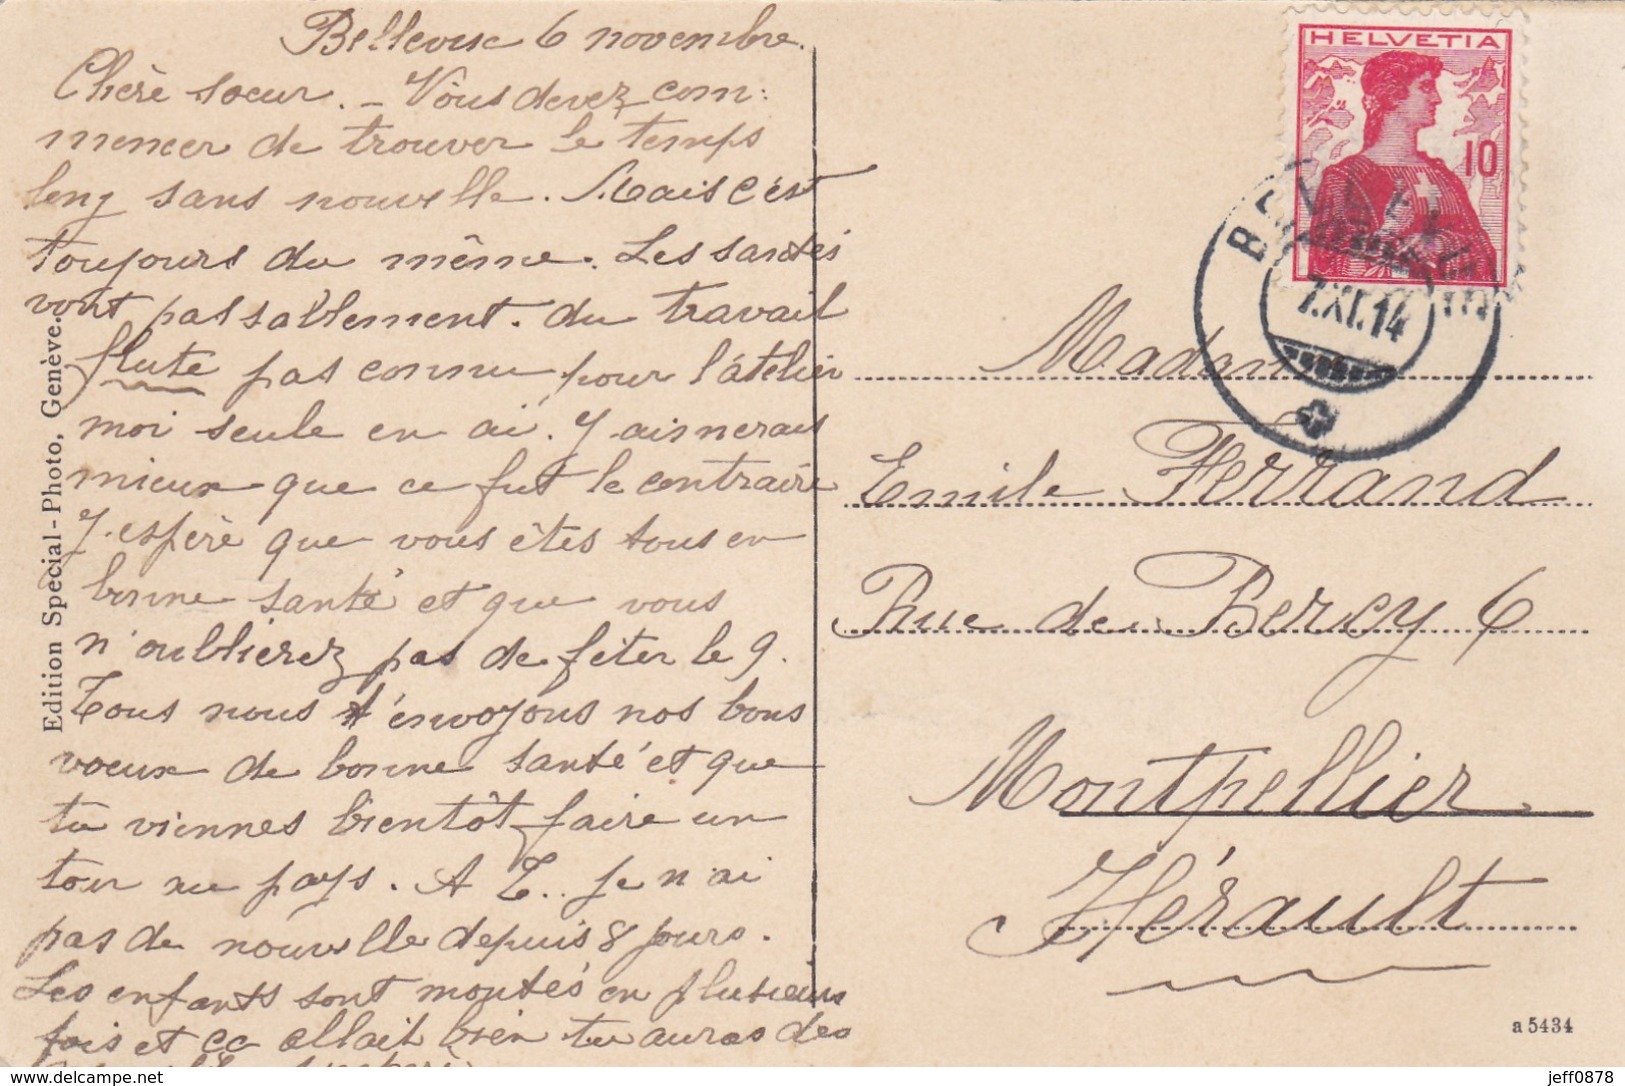 Bellevue 6 novembre.
Chère soeur. – Vous devez com:
mencer de trouver le temps
long sans nouvelle. Mais c'est
toujours du même. Les santés
vont passablement. du travail
flute pas connu pour l'atelier
moi seule en ai. J'aimerais
mieux que ce fut le contraire
J'espère que vous êtes tous en
bonne santé et que vous
n'oublierez pas de fêter le 9.
Tous nous t'envoyons nos bons
voeux de bonne santé et que
tu viennes bientôt faire un
tour au pays. A T.. je n'ai
pas de nouvelle depuis 8 jours.
Les enfants sont montés en plusieurs
fois et ça allait bien tu auras des
Edition Spécial-Photo, Genève.
HELVETIA
10
BELLEVUE
7.XI.14
Madame
Emile Ferrand
Rue de Bercy 6
Montpellier
Hérault
a 5434
delcampe.net
jeff0878